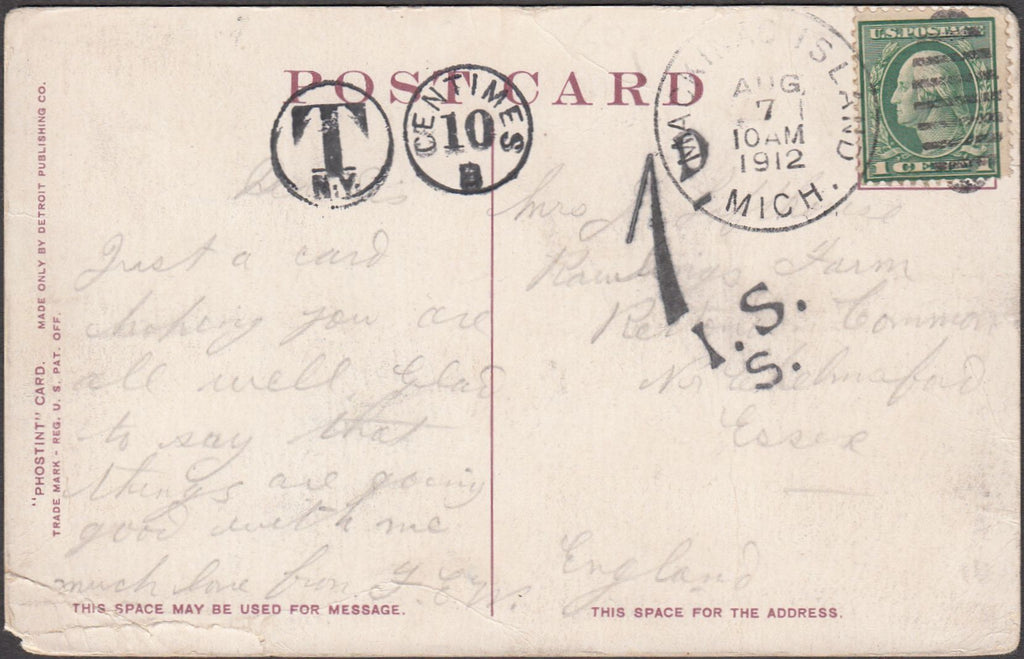 POST CARD
T
N.Y.
CENTIMES
10
B
MACKINAC ISLAND
AUG
7
10 AM
1912
MICH.
U.S. POSTAGE
1 CENT 1
1D
I.S.
S.
"PHOSTINT" CARD. MADE ONLY BY DETROIT PUBLISHING CO.
TRADE MARK - REG. U. S. PAT. OFF.
Just a card
hoping you are
all well Glad
to say that
things are going
good with me
much love from
Mrs
Rawlings Farm
Common
Nr Chelmsford
Essex
England
THIS SPACE MAY BE USED FOR MESSAGE.
THIS SPACE FOR THE ADDRESS.